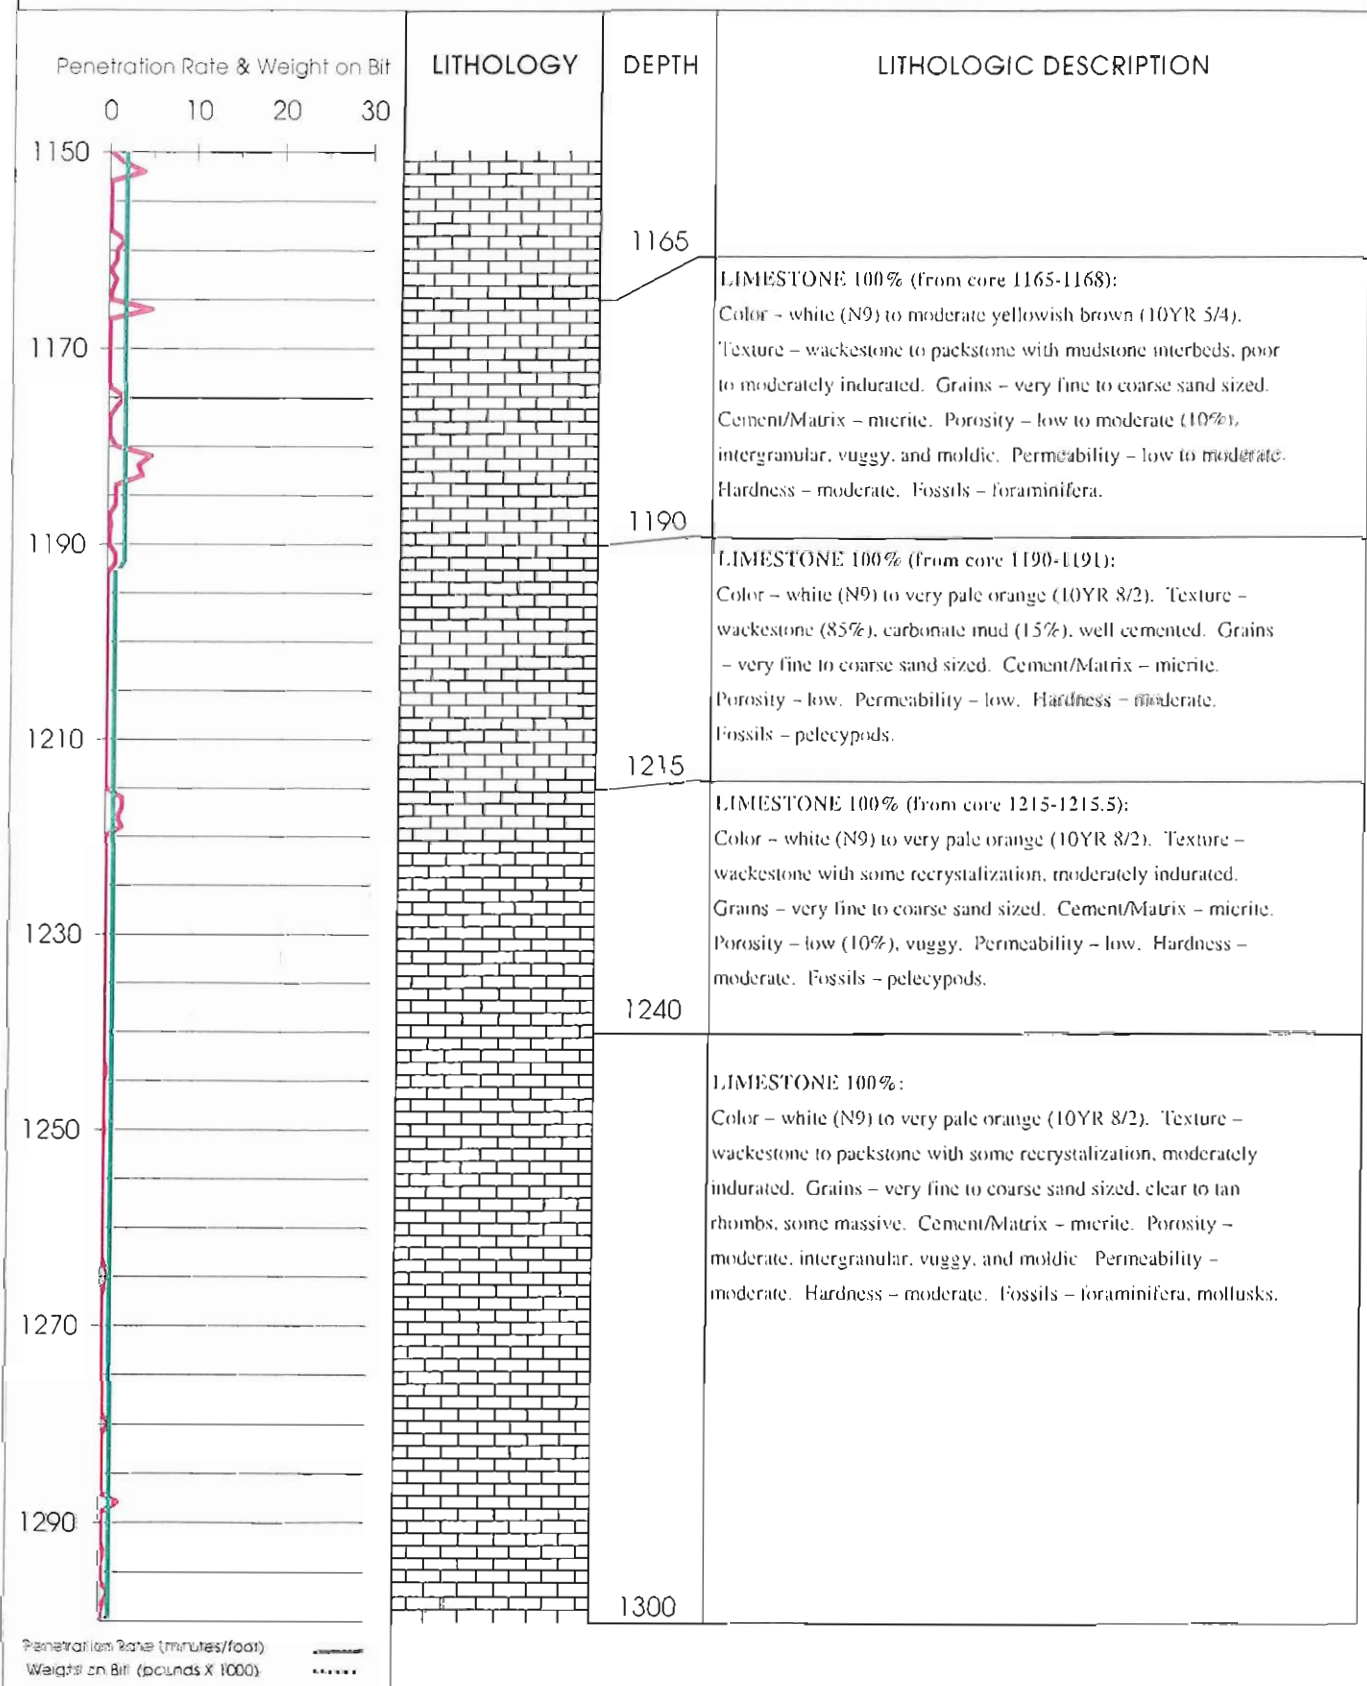 Penetration Rate & Weight on Bit
LITHOLOGY
DEPTH
LITHOLOGIC DESCRIPTION
0 10 20 30
1150
1165
LIMESTONE 100% (from core 1165-1168):
Color – white (N9) to moderate yellowish brown (10YR 5/4).
1170
Texture – wackestone to packstone with mudstone interbeds, poor
to moderately indurated. Grains – very fine to coarse sand sized.
Cement/Matrix – micrite. Porosity – low to moderate (10%),
intergranular, vuggy, and moldic. Permeability – low to moderate.
Hardness – moderate. Fossils – foraminifera.
1190
1190
LIMESTONE 100% (from core 1190-1191):
Color – white (N9) to very pale orange (10YR 8/2). Texture –
wackestone (85%), carbonate mud (15%), well cemented. Grains
– very fine to coarse sand sized. Cement/Matrix – micrite.
Porosity – low. Permeability – low. Hardness – moderate.
Fossils – pelecypods.
1210
1215
LIMESTONE 100% (from core 1215-1215.5):
Color – white (N9) to very pale orange (10YR 8/2). Texture –
wackestone with some recrystalization, moderately indurated.
Grains – very fine to coarse sand sized. Cement/Matrix – micrite.
1230
Porosity – low (10%), vuggy. Permeability – low. Hardness –
moderate. Fossils – pelecypods.
1240
LIMESTONE 100%:
Color – white (N9) to very pale orange (10YR 8/2). Texture –
1250
wackestone to packstone with some recrystalization, moderately
indurated. Grains – very fine to coarse sand sized, clear to tan
rhombs, some massive. Cement/Matrix – micrite. Porosity –
moderate, intergranular, vuggy, and moldic Permeability –
moderate. Hardness – moderate. Fossils – foraminifera, mollusks.
1270
1290
1300
Penetration Rate (minutes/foot)
Weight on Bit (pounds X 1000)